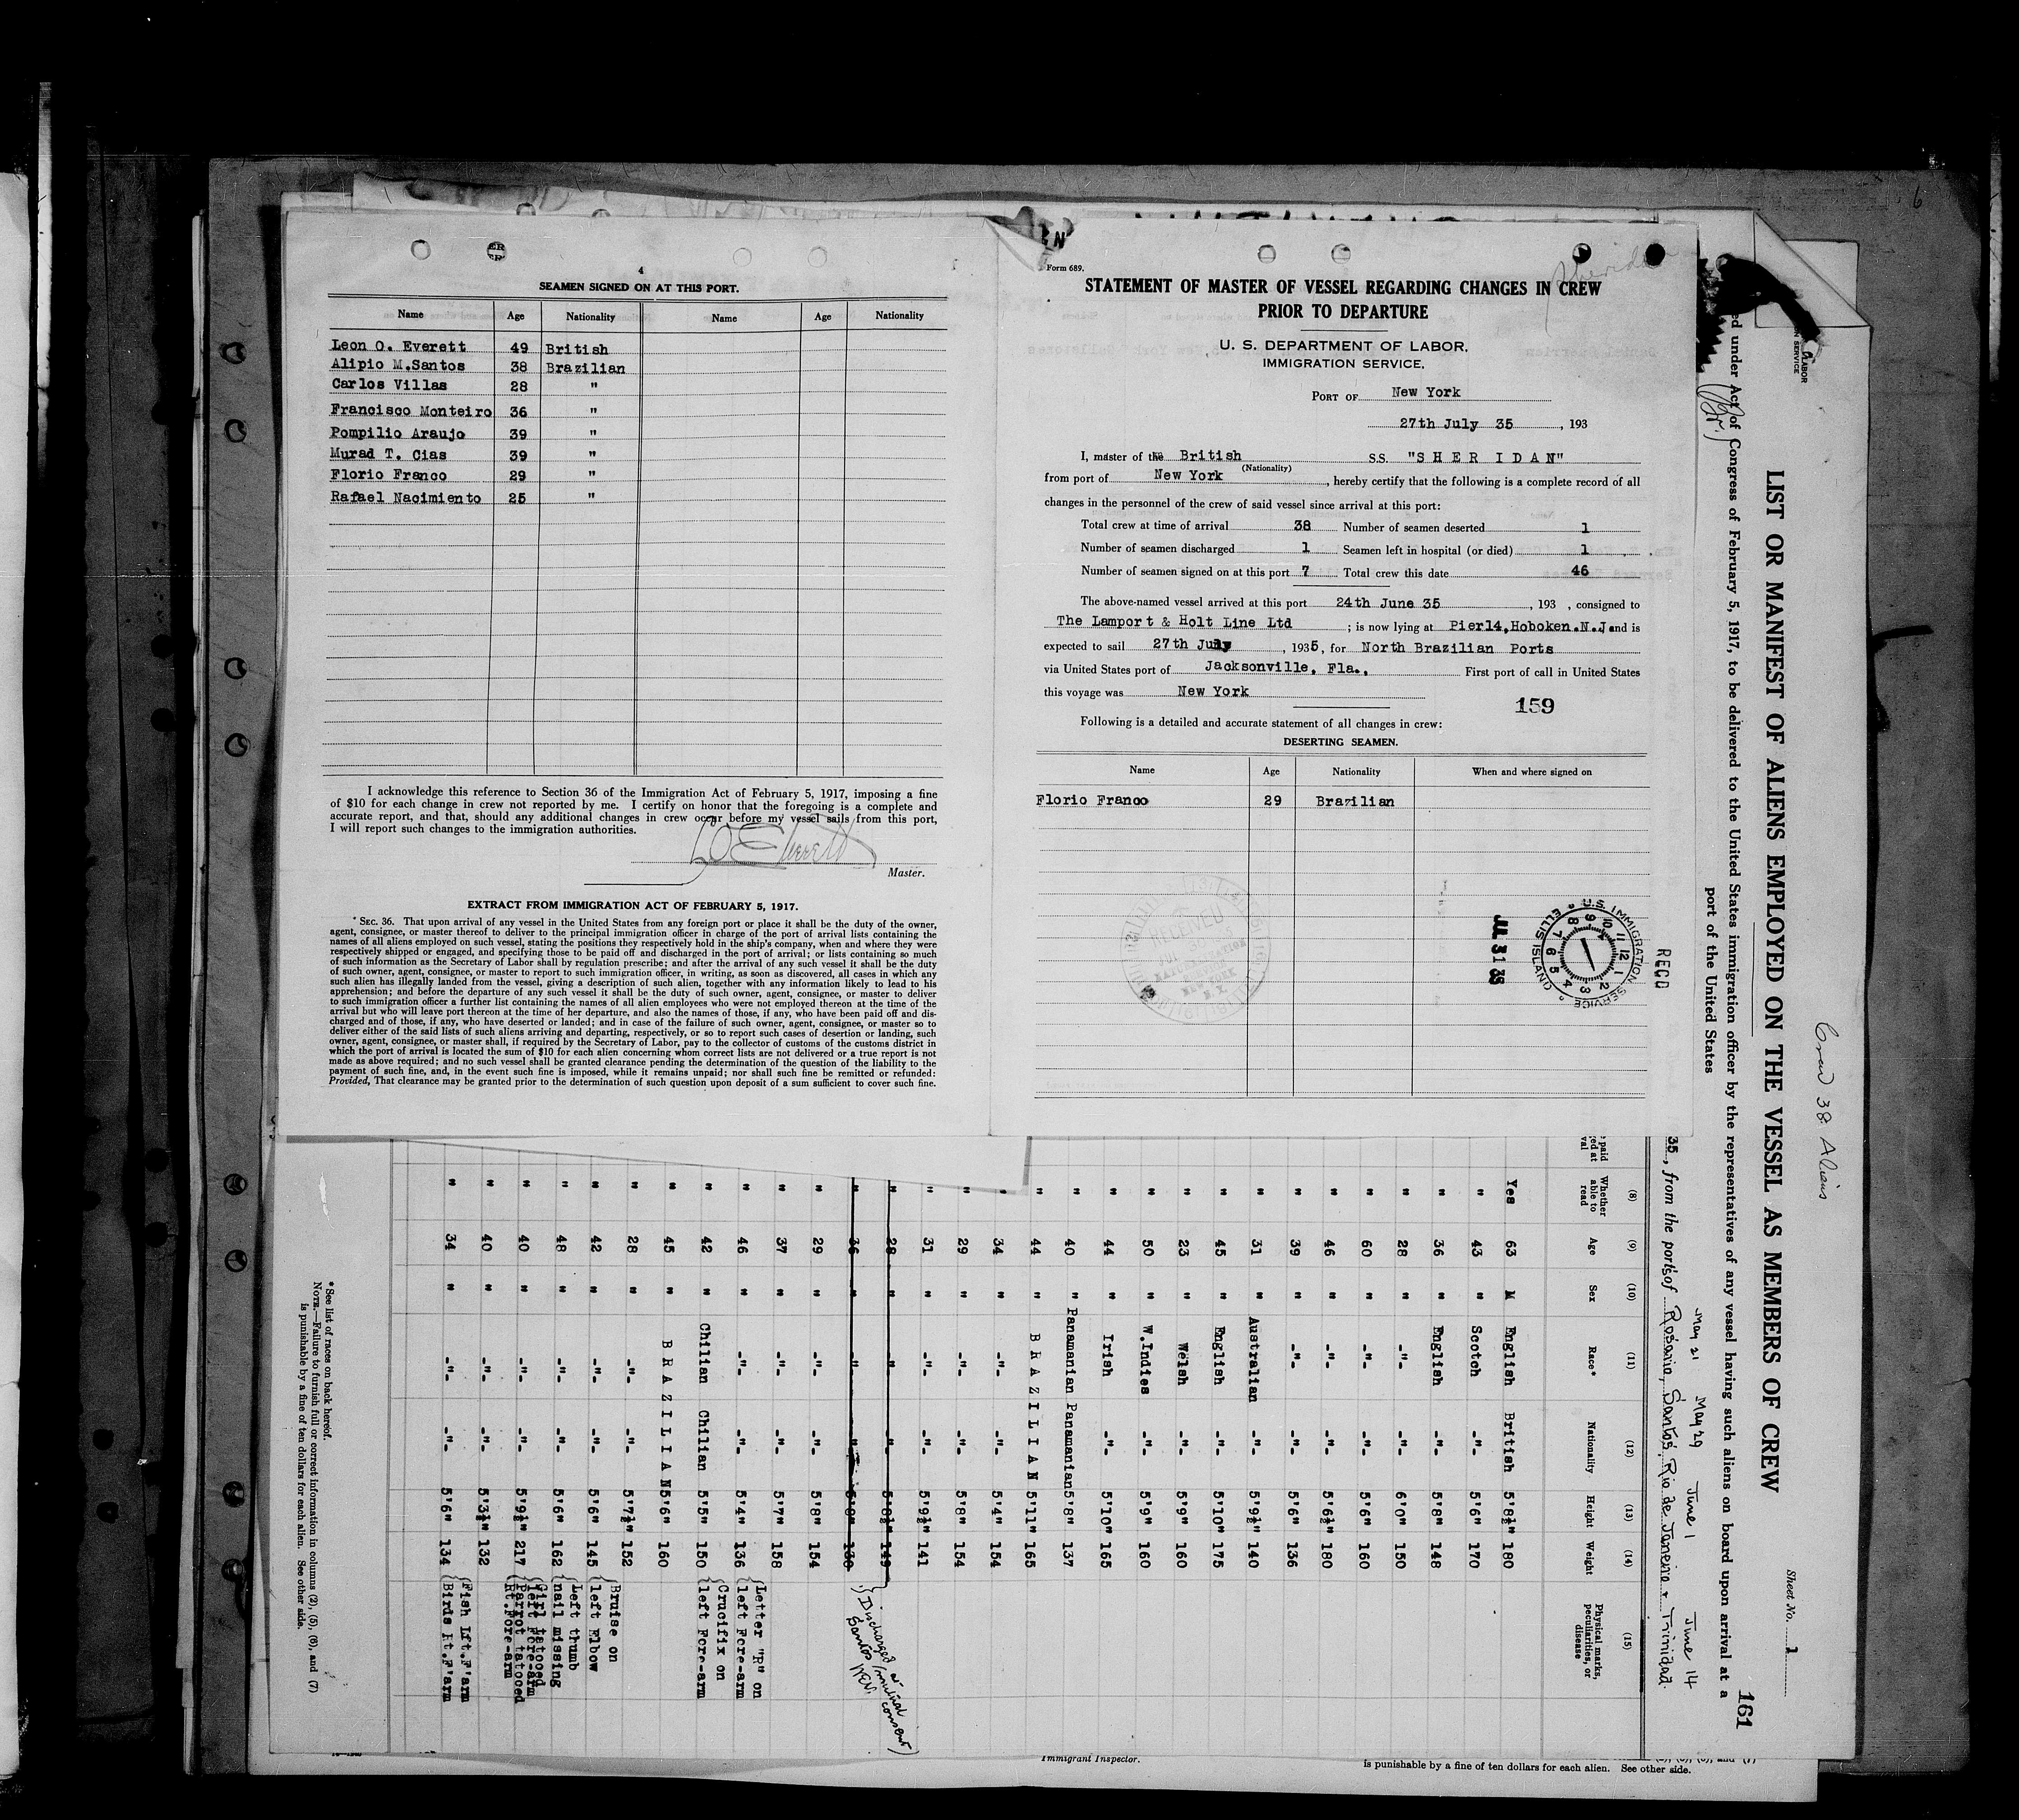 4
SEAMEN SIGNED ON AT THIS PORT.
Name Age Nationality Name Age Nationality
Leon O. Everett 49 British
Alipio M.Santos 38 Brazilian
Carlos Villas 28 "
Francisco Monteiro 36 "
Pompilio Araujo 39 "
Murad T. Cias 39 "
Florio Franco 29 "
Rafael Nacimiento 25 "
I acknowledge this reference to Section 36 of the Immigration Act of February 5, 1917, imposing a fine
of $10 for each change in crew not reported by me. I certify on honor that the foregoing is a complete and
accurate report, and that, should any additional changes in crew occur before my vessel sails from this port,
I will report such changes to the immigration authorities.
LO Everett
Master.
EXTRACT FROM IMMIGRATION ACT OF FEBRUARY 5, 1917.
" SEC. 36. That upon arrival of any vessel in the United States from any foreign port or place it shall be the duty of the owner,
agent, consignee, or master thereof to deliver to the principal immigration officer in charge of the port of arrival lists containing the
names of all aliens employed on such vessel, stating the positions they respectively hold in the ship's company, when and where they were
respectively shipped or engaged, and specifying those to be paid off and discharged in the port of arrival; or lists containing so much
of such information as the Secretary of Labor shall by regulation prescribe; and after the arrival of any such vessel it shall be the duty
of such owner, agent, consignee, or master to report to such immigration officer, in writing, as soon as discovered, all cases in which any
such alien has illegally landed from the vessel, giving a description of such alien, together with any information likely to lead to his
apprehension; and before the departure of any such vessel it shall be the duty of such owner, agent, consignee, or master to deliver
to such immigration officer a further list containing the names of all alien employees who were not employed thereon at the time of the
arrival but who will leave port thereon at the time of her departure, and also the names of those, if any, who have been paid off and dis-
charged and of those, if any, who have deserted or landed; and in case of the failure of such owner, agent, consignee, or master so to
deliver either of the said lists of such aliens arriving and departing, respectively, or so to report such cases of desertion or landing, such
owner, agent, consignee, or master shall, if required by the Secretary of Labor, pay to the collector of customs of the customs district in
which the port of arrival is located the sum of $10 for each alien concerning whom correct lists are not delivered or a true report is not
made as above required; and no such vessel shall be granted clearance pending the determination of the question of the liability to the
payment of such fine, and, in the event such fine is imposed, while it remains unpaid; nor shall such fine be remitted or refunded:
Provided, That clearance may be granted prior to the determination of such question upon deposit of a sum sufficient to cover such fine.
Form 689.
Sheridan
STATEMENT OF MASTER OF VESSEL REGARDING CHANGES IN CREW
PRIOR TO DEPARTURE
U. S. DEPARTMENT OF LABOR,
IMMIGRATION SERVICE,
PORT OF New York
27th July 35 , 193
I, master of the British SS. "S H E R I D A N"
(Nationality)
from port of New York , hereby certify that the following is a complete record of all
changes in the personnel of the crew of said vessel since arrival at this port:
Total crew at time of arrival 38 Number of seamen deserted 1
Number of seamen discharged 1 Seamen left in hospital (or died) 1
Number of seamen signed on at this port 7 Total crew this date 46
The above-named vessel arrived at this port 24th June 35 , 193 , consigned to
The Lamport & Holt Line Ltd ; is now lying at Pier14,Hoboken.N.J, and is
expected to sail 27th July , 1935, for North Brazilian Ports
via United States port of Jacksonville, Fla., First port of call in United States
this voyage was New York
159
Following is a detailed and accurate statement of all changes in crew:
DESERTING SEAMEN.
Name Age Nationality When and where signed on
Florio Franco 29 Brazilian
RECEIVED
U.S. IMMIGRATION SERVICE
ELLIS ISLAND
JUL 31 35
REC'D
Crew 38 Aliens
Sheet No. 1
161
LIST OR MANIFEST OF ALIENS EMPLOYED ON THE VESSEL AS MEMBERS OF CREW
ed under Act of Congress of February 5, 1917, to be delivered to the United States immigration officer by the representatives of any vessel having such aliens on board upon arrival at a
port of the United States
May 21 May 29 June 1 June 14
35, from the ports of Rosario, Santos, Rio de Janeiro & Trinidad.
(8) (9) (10) (11) (12) (13) (14) (15)
Whether able to read Age Sex Race* Nationality Height Weight Physical marks, peculiarities, or disease
Yes 63 M English British 5'8½" 180
" 43 " Scotch -"- 5'6" 170
" 36 " English -"- 5'8" 148
" 28 " -"- -"- 6'0" 150
" 60 " -"- -"- 5'6" 160
" 46 " -"- -"- 5'6½" 180
" 39 " -"- -"- 5'6" 136
" 31 " Australian -"- 5'9½" 140
" 45 " English -"- 5'10" 178
" 23 " Welsh -"- 5'9" 160
" 50 " W.Indies -"- 5'9" 160
" 44 " Irish -"- 5'10" 165
" 40 " Panamanian Panamanian 5'8" 137
" 44 " B R A Z I L I A N 5'11" 165
" 34 " -"- -"- 5'4" 154
" 29 " -"- -"- 5'8" 154
" 31 " -"- -"- 5'9½" 141
" 28 " -"- -"- 5'8½" 149
" 36 " -"- -"- 130
Discharged at Santos mutual consent
" 29 " -"- -"- 5'8" 154
" 37 " -"- -"- 5'7" 158
" 46 " -"- -"- 5'4" 136 Letter "R" on left Fore-arm
" 42 " Chilian Chilian 5'5" 150 Crucifix on left Fore-arm
" 45 " B R A Z I L I A N 5'6" 160
" 28 " -"- -"- 5'7½" 152
" 42 " -"- -"- 5'6" 145 Bruise on left Elbow
" 48 " -"- -"- 5'6" 162 Left thumb nail missing
" 40 " -"- -"- 5'9½" 217 Girl tatooed left Fore-arm Parrot tatooed Rt.Fore-arm
" 40 " -"- -"- 5'3½" 132
" 34 " -"- -"- 5'6" 134 Fish Lft.F'arm Birds Rt.F'arm
*See list of races on back hereof.
NOTE.—Failure to furnish full or correct information in columns (2), (5), (6), and (7)
is punishable by a fine of ten dollars for each alien. See other side.
Immigrant Inspector.
is punishable by a fine of ten dollars for each alien. See other side.